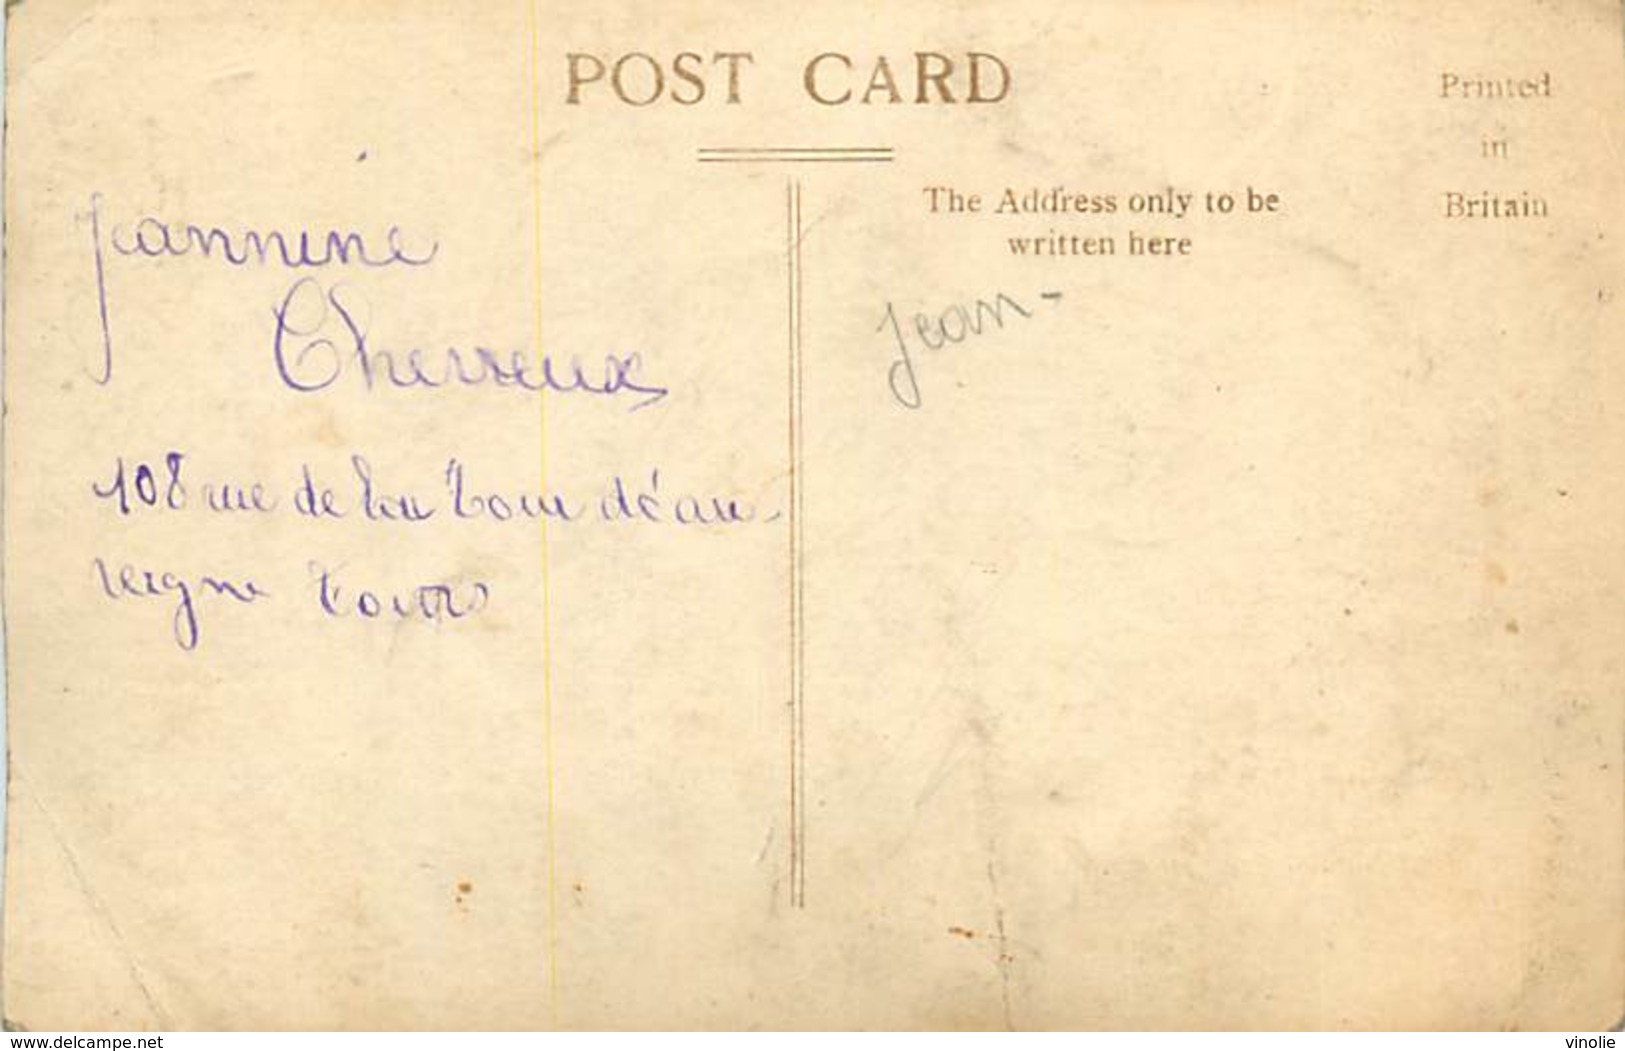 POST CARD
Printed
in
Britain
The Address only to be
written here
Jeannine
Cherreux
Jean -
108 rue de la Tour d'éau-
vergne Tours
www.delcampe.net
vinolie